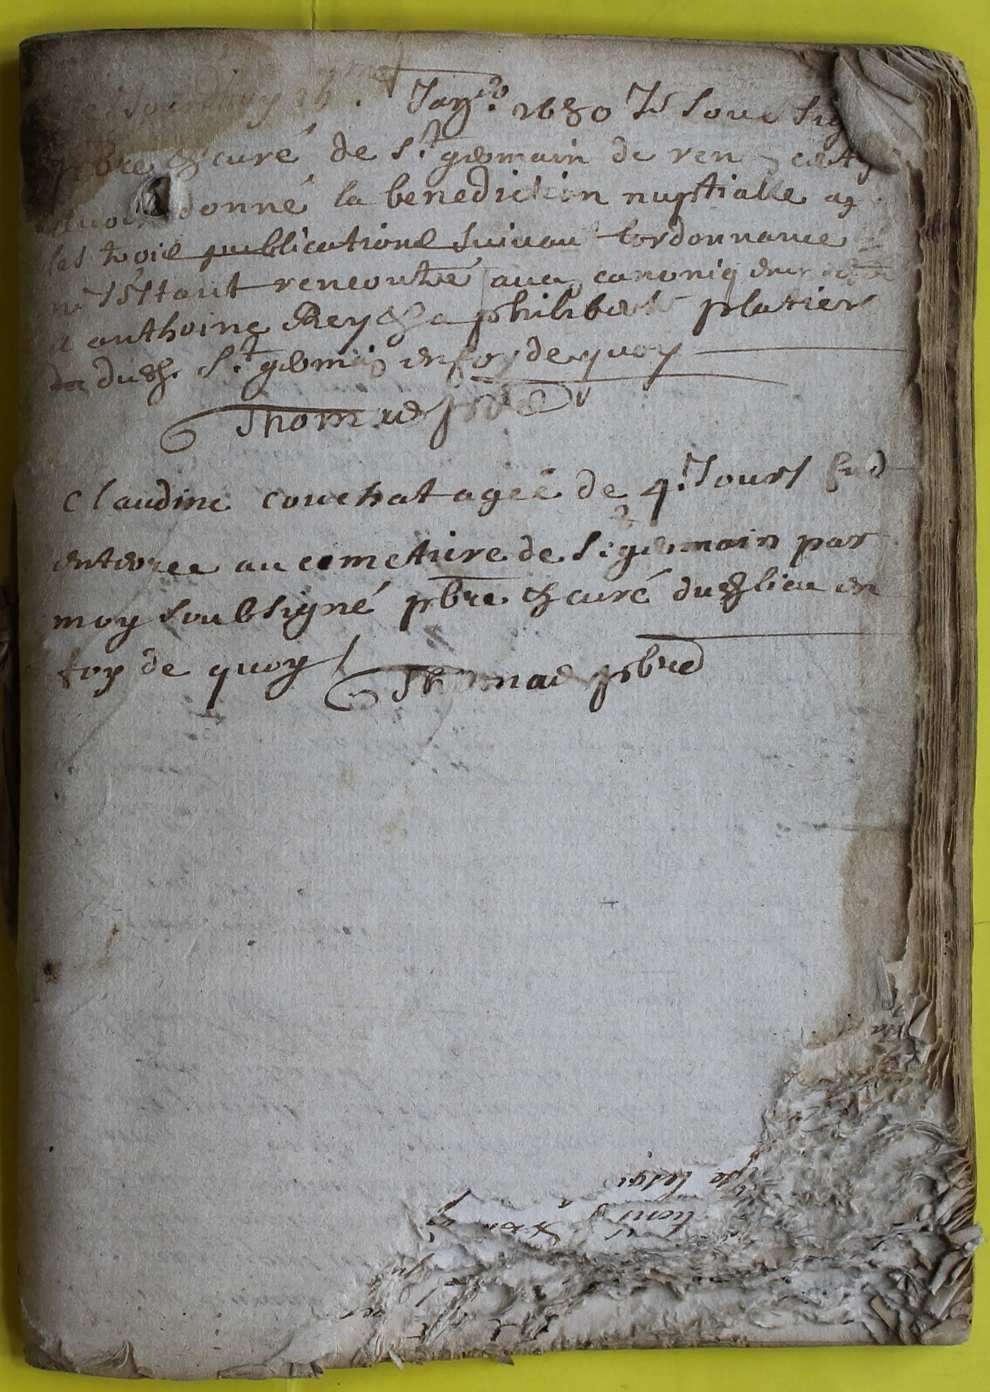 Janv. 1680 Je soub sig
pbre & curé de St germain de ren
avoir donné la benediction nuptialle
les trois publications suivan lordonnance
n'estant rencontré aucun canoniq
a anthoine Rey & a philiberte platier
dudt St germain en foy de quoy
Thomas pbre
Claudine couchat ageé de 4 Jours
enterree au cemetiere de St germain par
moy soubsigné pbre & curé dudt lieu en
foy de quoy
Thomas pbre